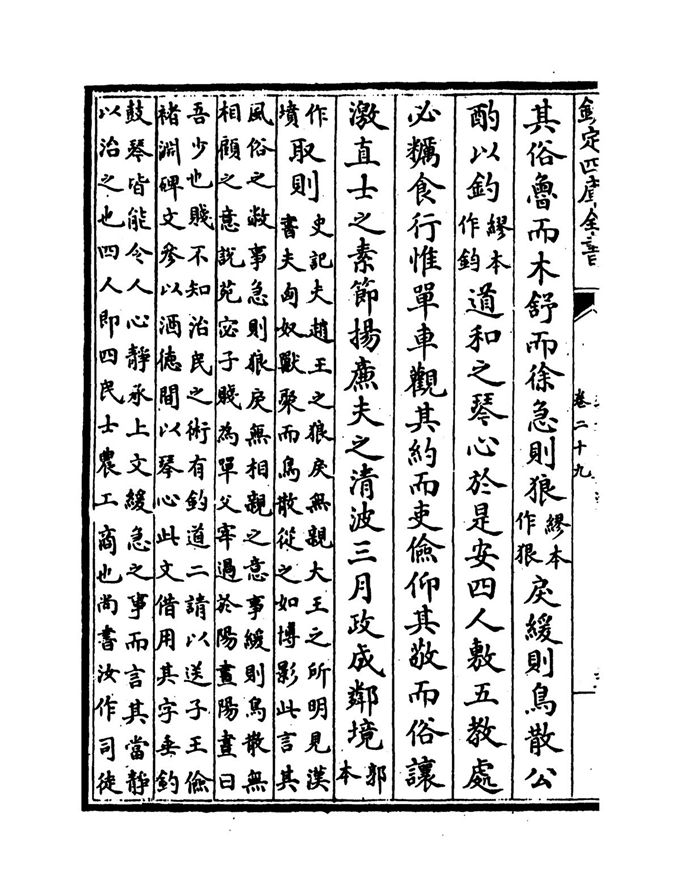 欽定四庫全書
卷二十九
其俗魯而木舒而徐急則狼繆本作狠戾緩則鳥散公
酌以釣繆本作鈞道和之琴心於是安四人敷五教處
必糲食行惟單車觀其約而吏儉仰其敬而俗讓
激直士之素節揚廉夫之清波三月政成鄰境郭本
作墳取則
史記夫趙王之狼戾無親大王之所明見漢
書夫匈奴獸聚而鳥散從之如博影此言其
風俗之敝事急則狼戾無相親之意事緩則鳥散無
相顧之意說苑宓子賤為單父宰過於陽晝陽晝曰
吾少也賤不知治民之術有釣道二請以送子王儉
褚淵碑文參以酒德間以琴心此文借用其字垂釣
鼓琴皆能令人心靜承上文緩急之事而言其當靜
以治之也四人即四民士農工商也尚書汝作司徒